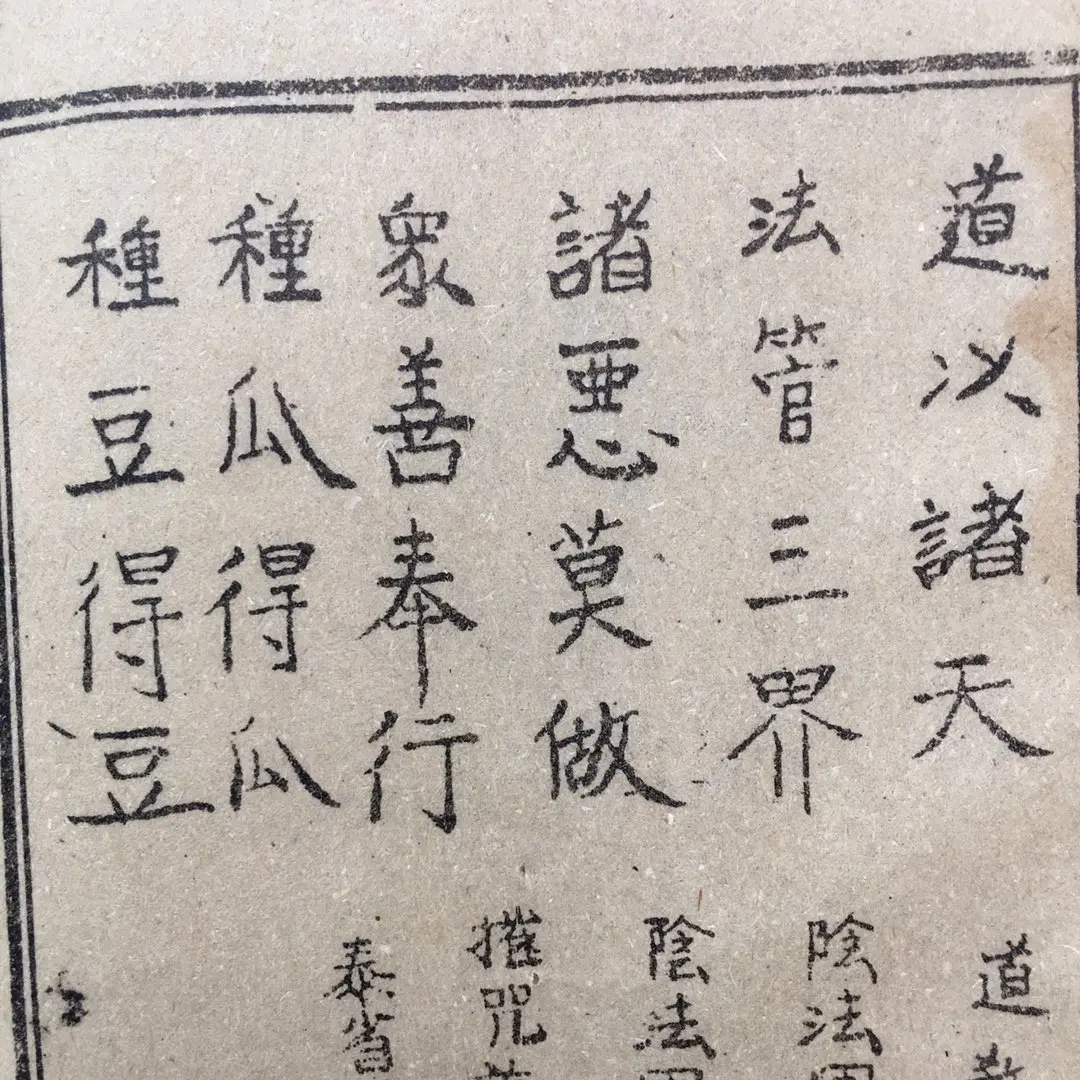 道以諸天
法管三界
諸惡莫做
眾善奉行
種瓜得瓜
種豆得豆
道教
陰法
陰法
咒
泰省